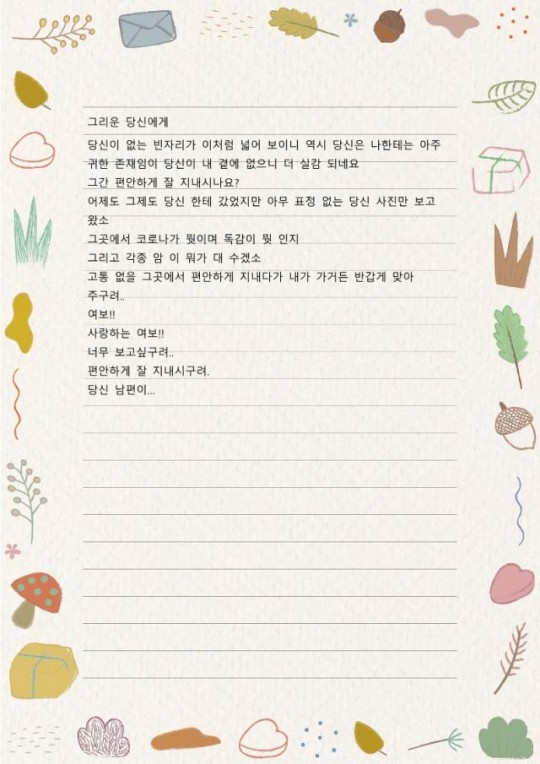 그리운 당신에게
당신이 없는 빈자리가 이처럼 넓어 보이니 역시 당신은 나한테는 아주
귀한 존재임이 당신이 내 곁에 없으니 더 실감 되네요
그간 편안하게 잘 지내시나요?
어제도 그제도 당신 한테 갔었지만 아무 표정 없는 당신 사진만 보고
왔소
그곳에서 코로나가 뭣이며 독감이 뭣 인지
그리고 각종 암 이 뭐가 대 수겠소
고통 없을 그곳에서 편안하게 지내다가 내가 가거든 반갑게 맞아
주구려..
여보!!
사랑하는 여보!!
너무 보고싶구려..
편안하게 잘 지내시구려.
당신 남편이...